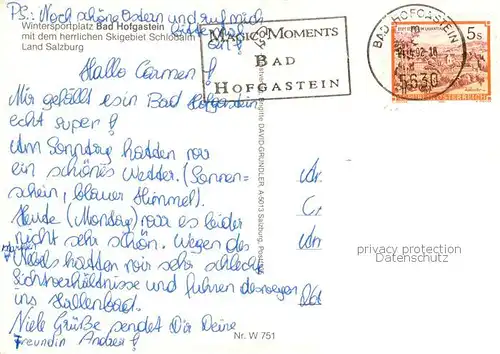 PS: Noch schöne Ostern und ruf mich
bitte mal
an!
Wintersportplatz Bad Hofgastein
mit dem herrlichen Skigebiet Schloßalm
Land Salzburg
MAGIC MOMENTS
BAD
HOFGASTEIN
BAD HOFGASTEIN
5630
5s
Hallo Carmen!
Mir gefällt es in Bad Hofgastein
echt super!
Am Sonntag hatten wir
ein schönes Wetter. (Sonnen-
schein, blauer Himmel).
Heute (Montag) war es leider
nicht sehr schön. Wegen des
Nebels hatten wir sehr schlechte
Sichtverhältnisse und fuhren deswegen
ins Hallenbad.
Viele Grüße sendet Dir Deine
Freundin Andrea!
Brigitte DAVID-GRÜNDLER, A-5013 Salzburg, Postfach
privacy protection
Datenschutz
Nr. W 751